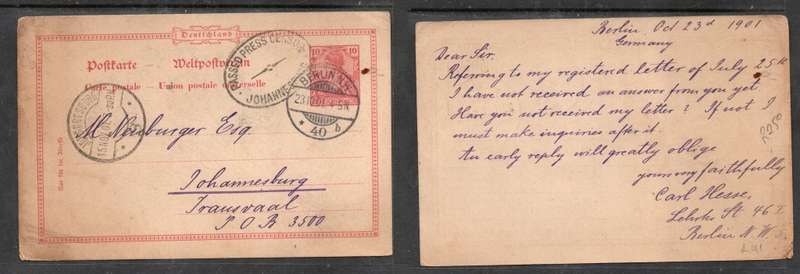 Deutschland
Postkarte — Weltpostverein
Carte postale — Union postale universelle
10 10
PASSED PRESS CENSOR
JOHANNES
BERLIN N.W.
23.10.01. 4-5N
* 40 d
JOHANNESBURG
15 NOV 01
M. Neuburger Esq.
Johannesburg
Transvaal
P O B 3500
Berlin Oct 23rd 1901
Germany
Dear Sir.
Referring to my registered letter of July 25th
I have not received an answer from you yet.
Have you not received my letter? If not I
must make inquiries after it.
An early reply will greatly oblige
yours very faithfully
Carl Hesse,
Lehrter St 46 I
Berlin N.W.